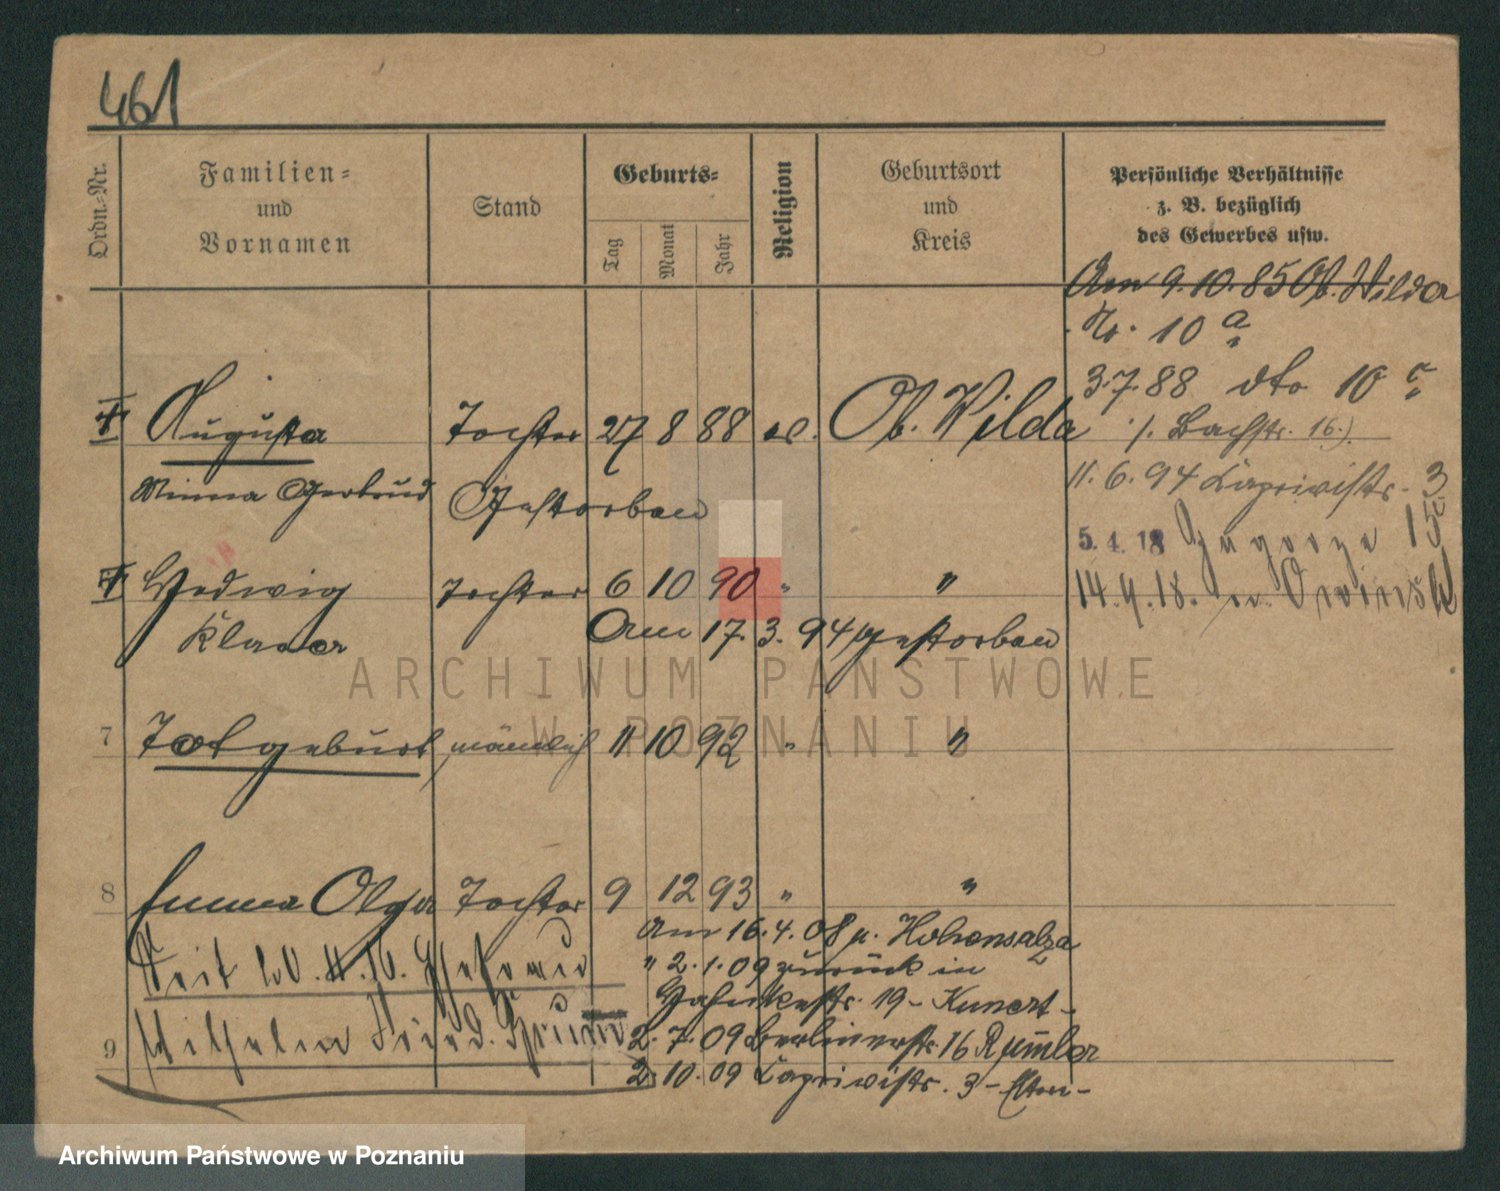 461
Ordn.-Nr.
Familien-
und
Vornamen
Stand
Geburts-
Tag
Monat
Jahr
Religion
Geburtsort
und
Kreis
Persönliche Verhältnisse
z. B. bezüglich
des Gewerbes usw.
Am 9.10.85 Ob. Wilda
Nr. 10 a
3.7.88 dto 10 c
Augusta Tochter 27 8 88 ev. Ob. Wilda
(. Bachstr. 16.)
Minna Gertrud Gestorben
11.6.94 Caprivistr. 3
5.4.18 15
Hedwig Tochter 6 10 90 " "
14.9.18. n. Owinsk
Klara Am 17.3.94 gestorben
7 Totgeburt männlich 11 10 92 " "
8 Emma Olga Tochter 9 12 93 " "
Am 16.4.08 n. Hohensalza
Seit
" 2.1.09 zurück in
19 - Kunert -
9 Wilhelm Fried.
2.7.09 Berlinerstr. 16
2.10.09 Caprivistr. 3 - Eltern -
ARCHIWUM PAŃSTWOWE
W POZNANIU
Archiwum Państwowe w Poznaniu